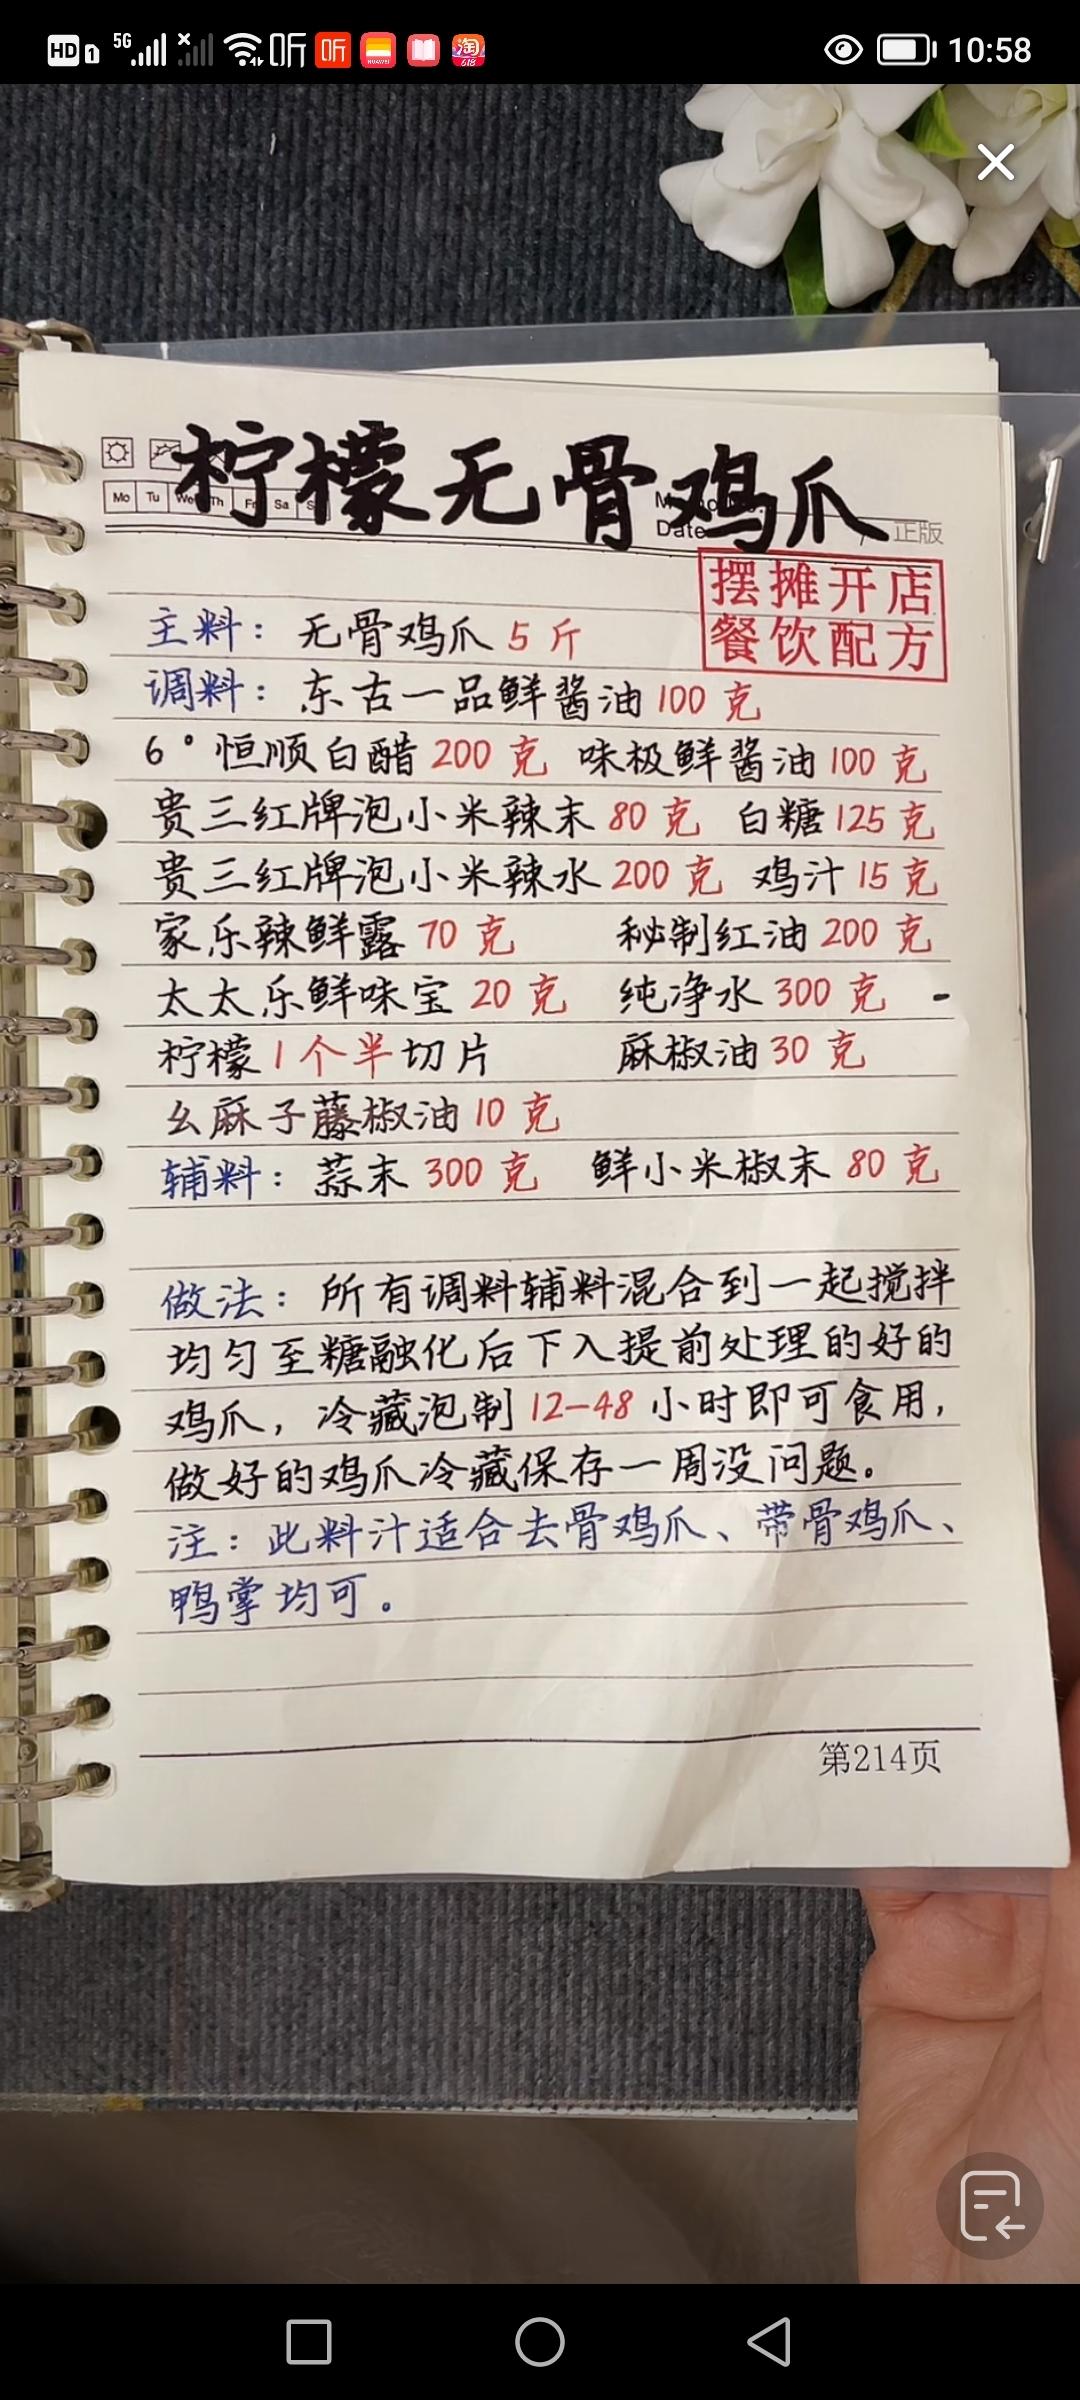 HD 1 5G 听 听 HUAWEI 淘 618 10:58
柠檬无骨鸡爪
Mo Tu We Th Fr Sa
Date
正版
摆摊开店
餐饮配方
主料：无骨鸡爪 5 斤
调料：东古一品鲜酱油 100 克
6°恒顺白醋 200 克 味极鲜酱油 100 克
贵三红牌泡小米辣末 80 克 白糖 125 克
贵三红牌泡小米辣水 200 克 鸡汁 15 克
家乐辣鲜露 70 克 秘制红油 200 克
太太乐鲜味宝 20 克 纯净水 300 克
柠檬 1 个半切片 麻椒油 30 克
幺麻子藤椒油 10 克
辅料：蒜末 300 克 鲜小米椒末 80 克
做法：所有调料辅料混合到一起搅拌
均匀至糖融化后下入提前处理的好的
鸡爪，冷藏泡制 12-48 小时即可食用，
做好的鸡爪冷藏保存一周没问题。
注：此料汁适合去骨鸡爪、带骨鸡爪、
鸭掌均可。
第214页